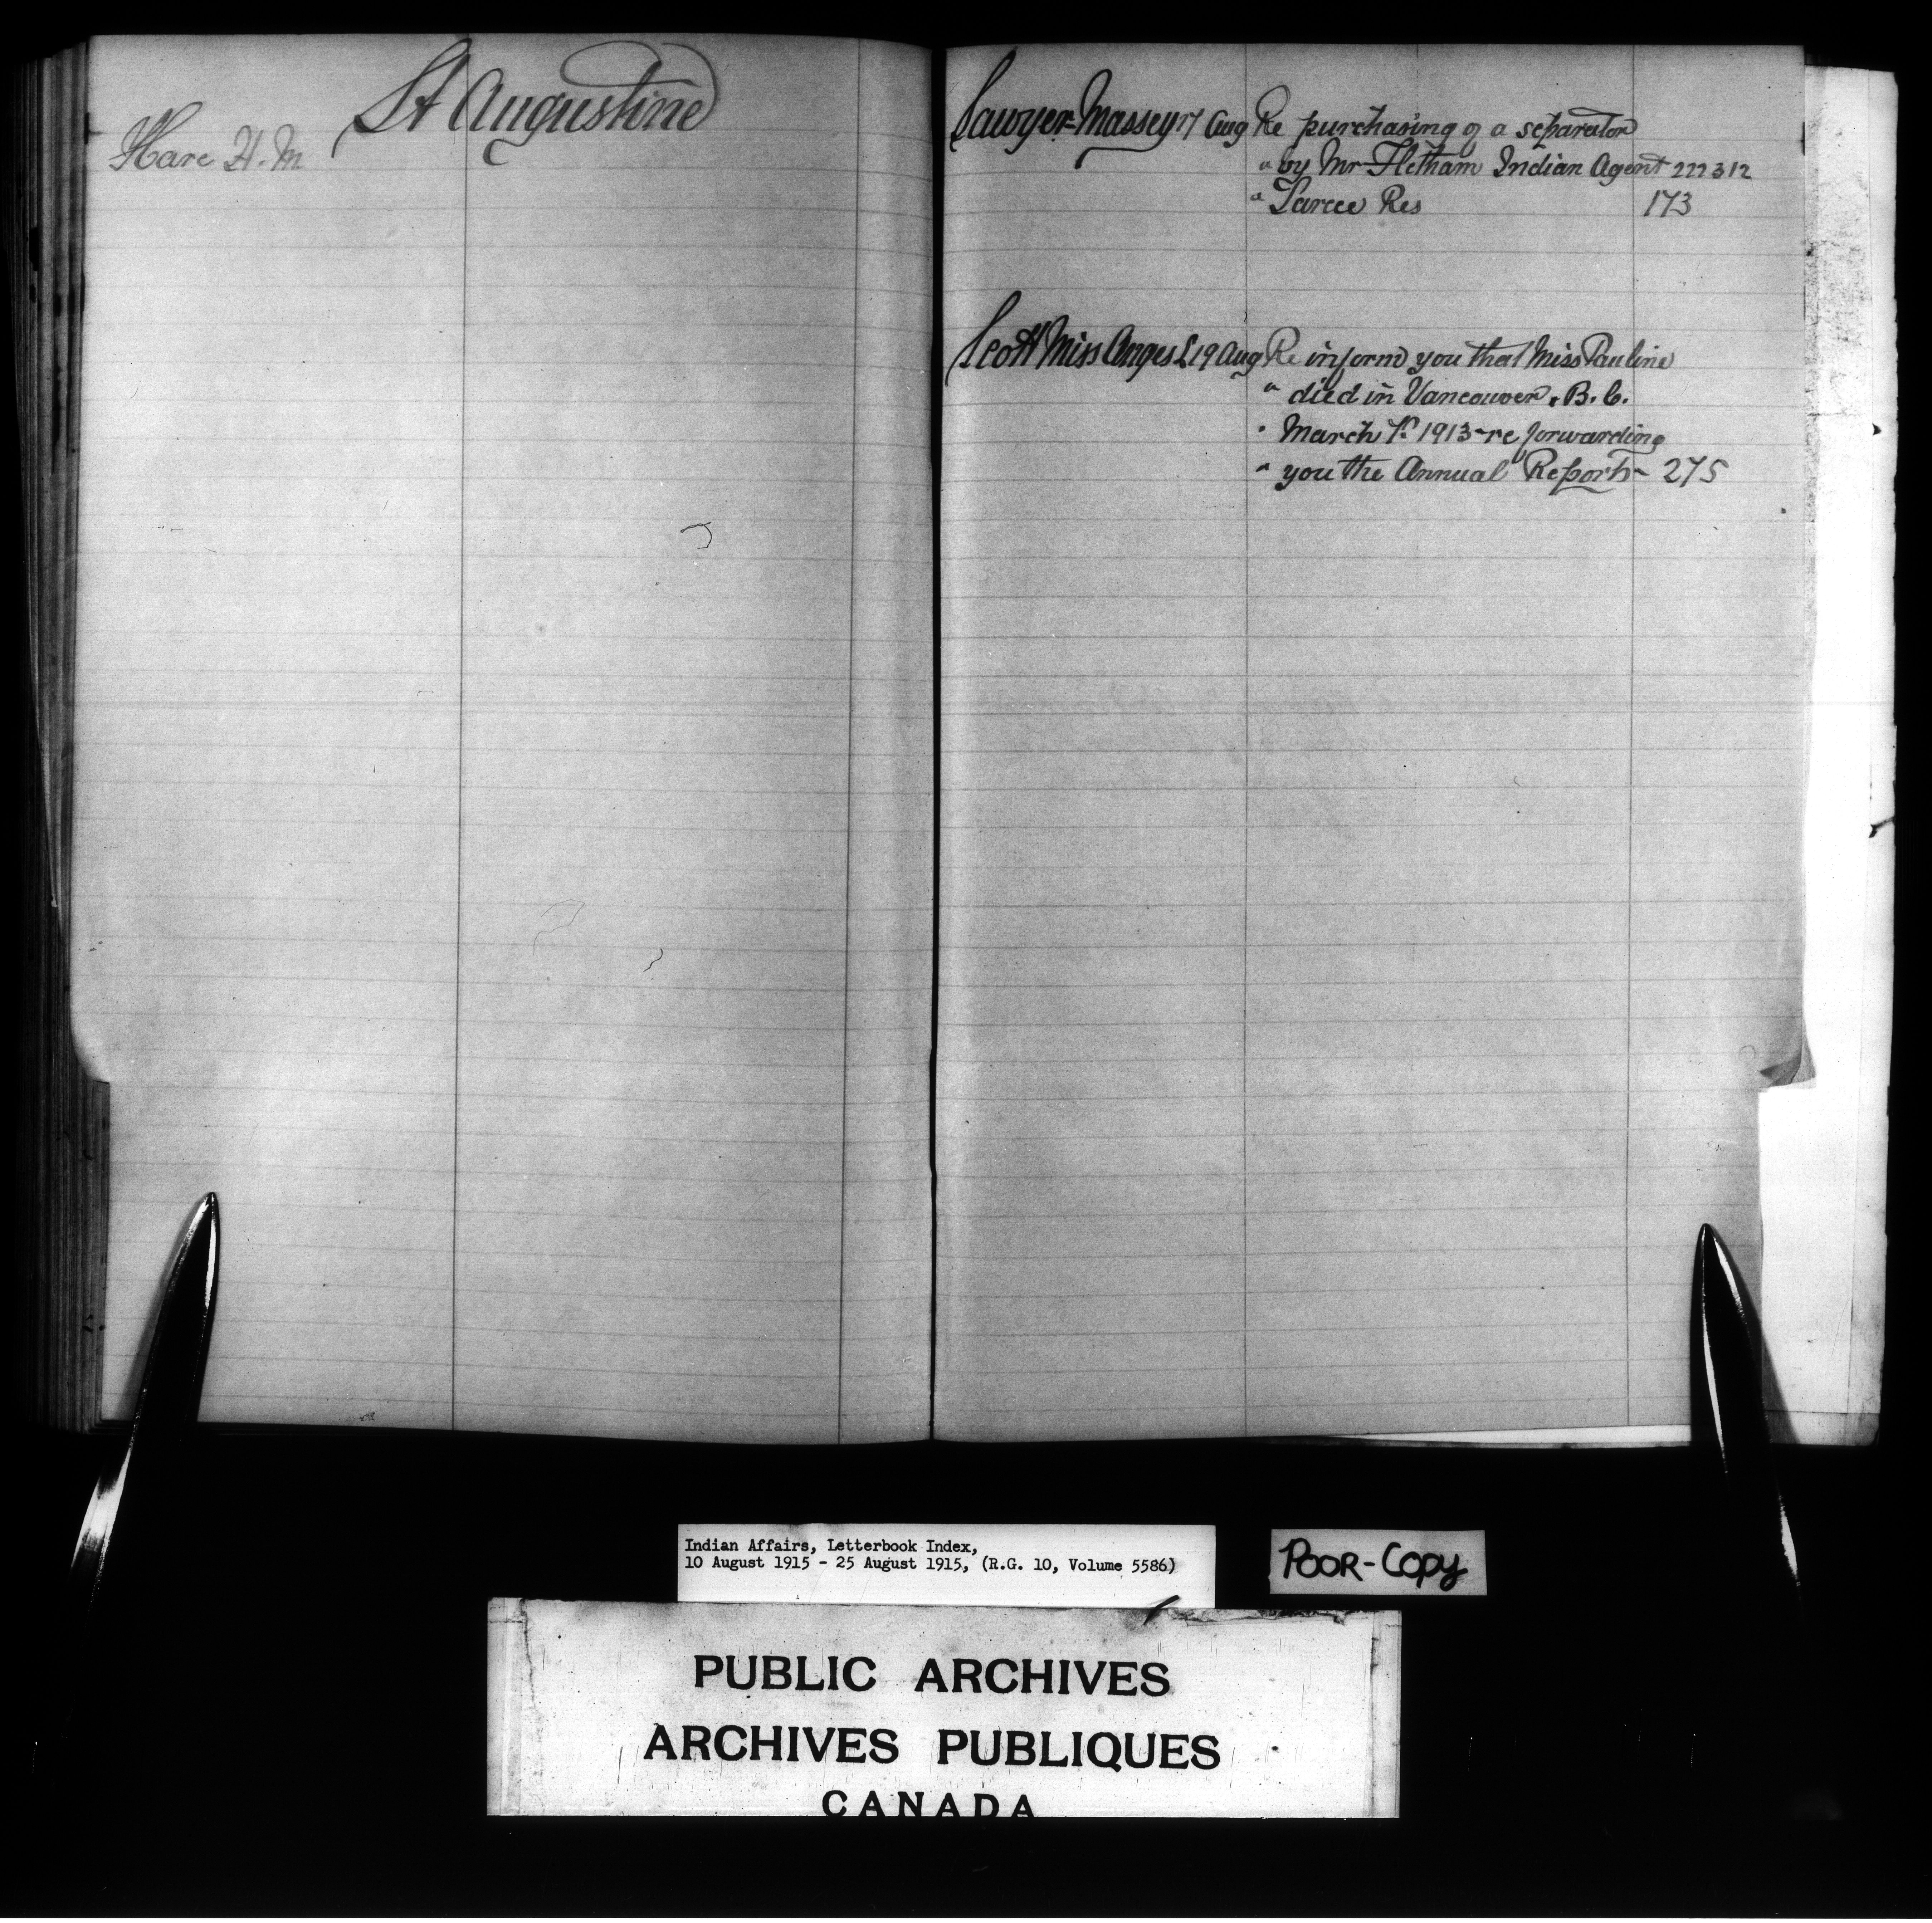 St Augustine
Hare H. M
Sawyer-Massey 17 Aug Re purchasing of a separator
" by Mr Fletham Indian Agent 222312
" Sarcee Res 173
Scott Miss Anges L 19 Aug Re inform you that Miss Pauline
" died in Vancouver, B.C.
" March 7th 1913 - re forwarding
" you the Annual Reports - 275
Indian Affairs, Letterbook Index,
10 August 1915 - 25 August 1915, (R.G. 10, Volume 5586)
POOR-COPY
PUBLIC ARCHIVES
ARCHIVES PUBLIQUES
CANADA